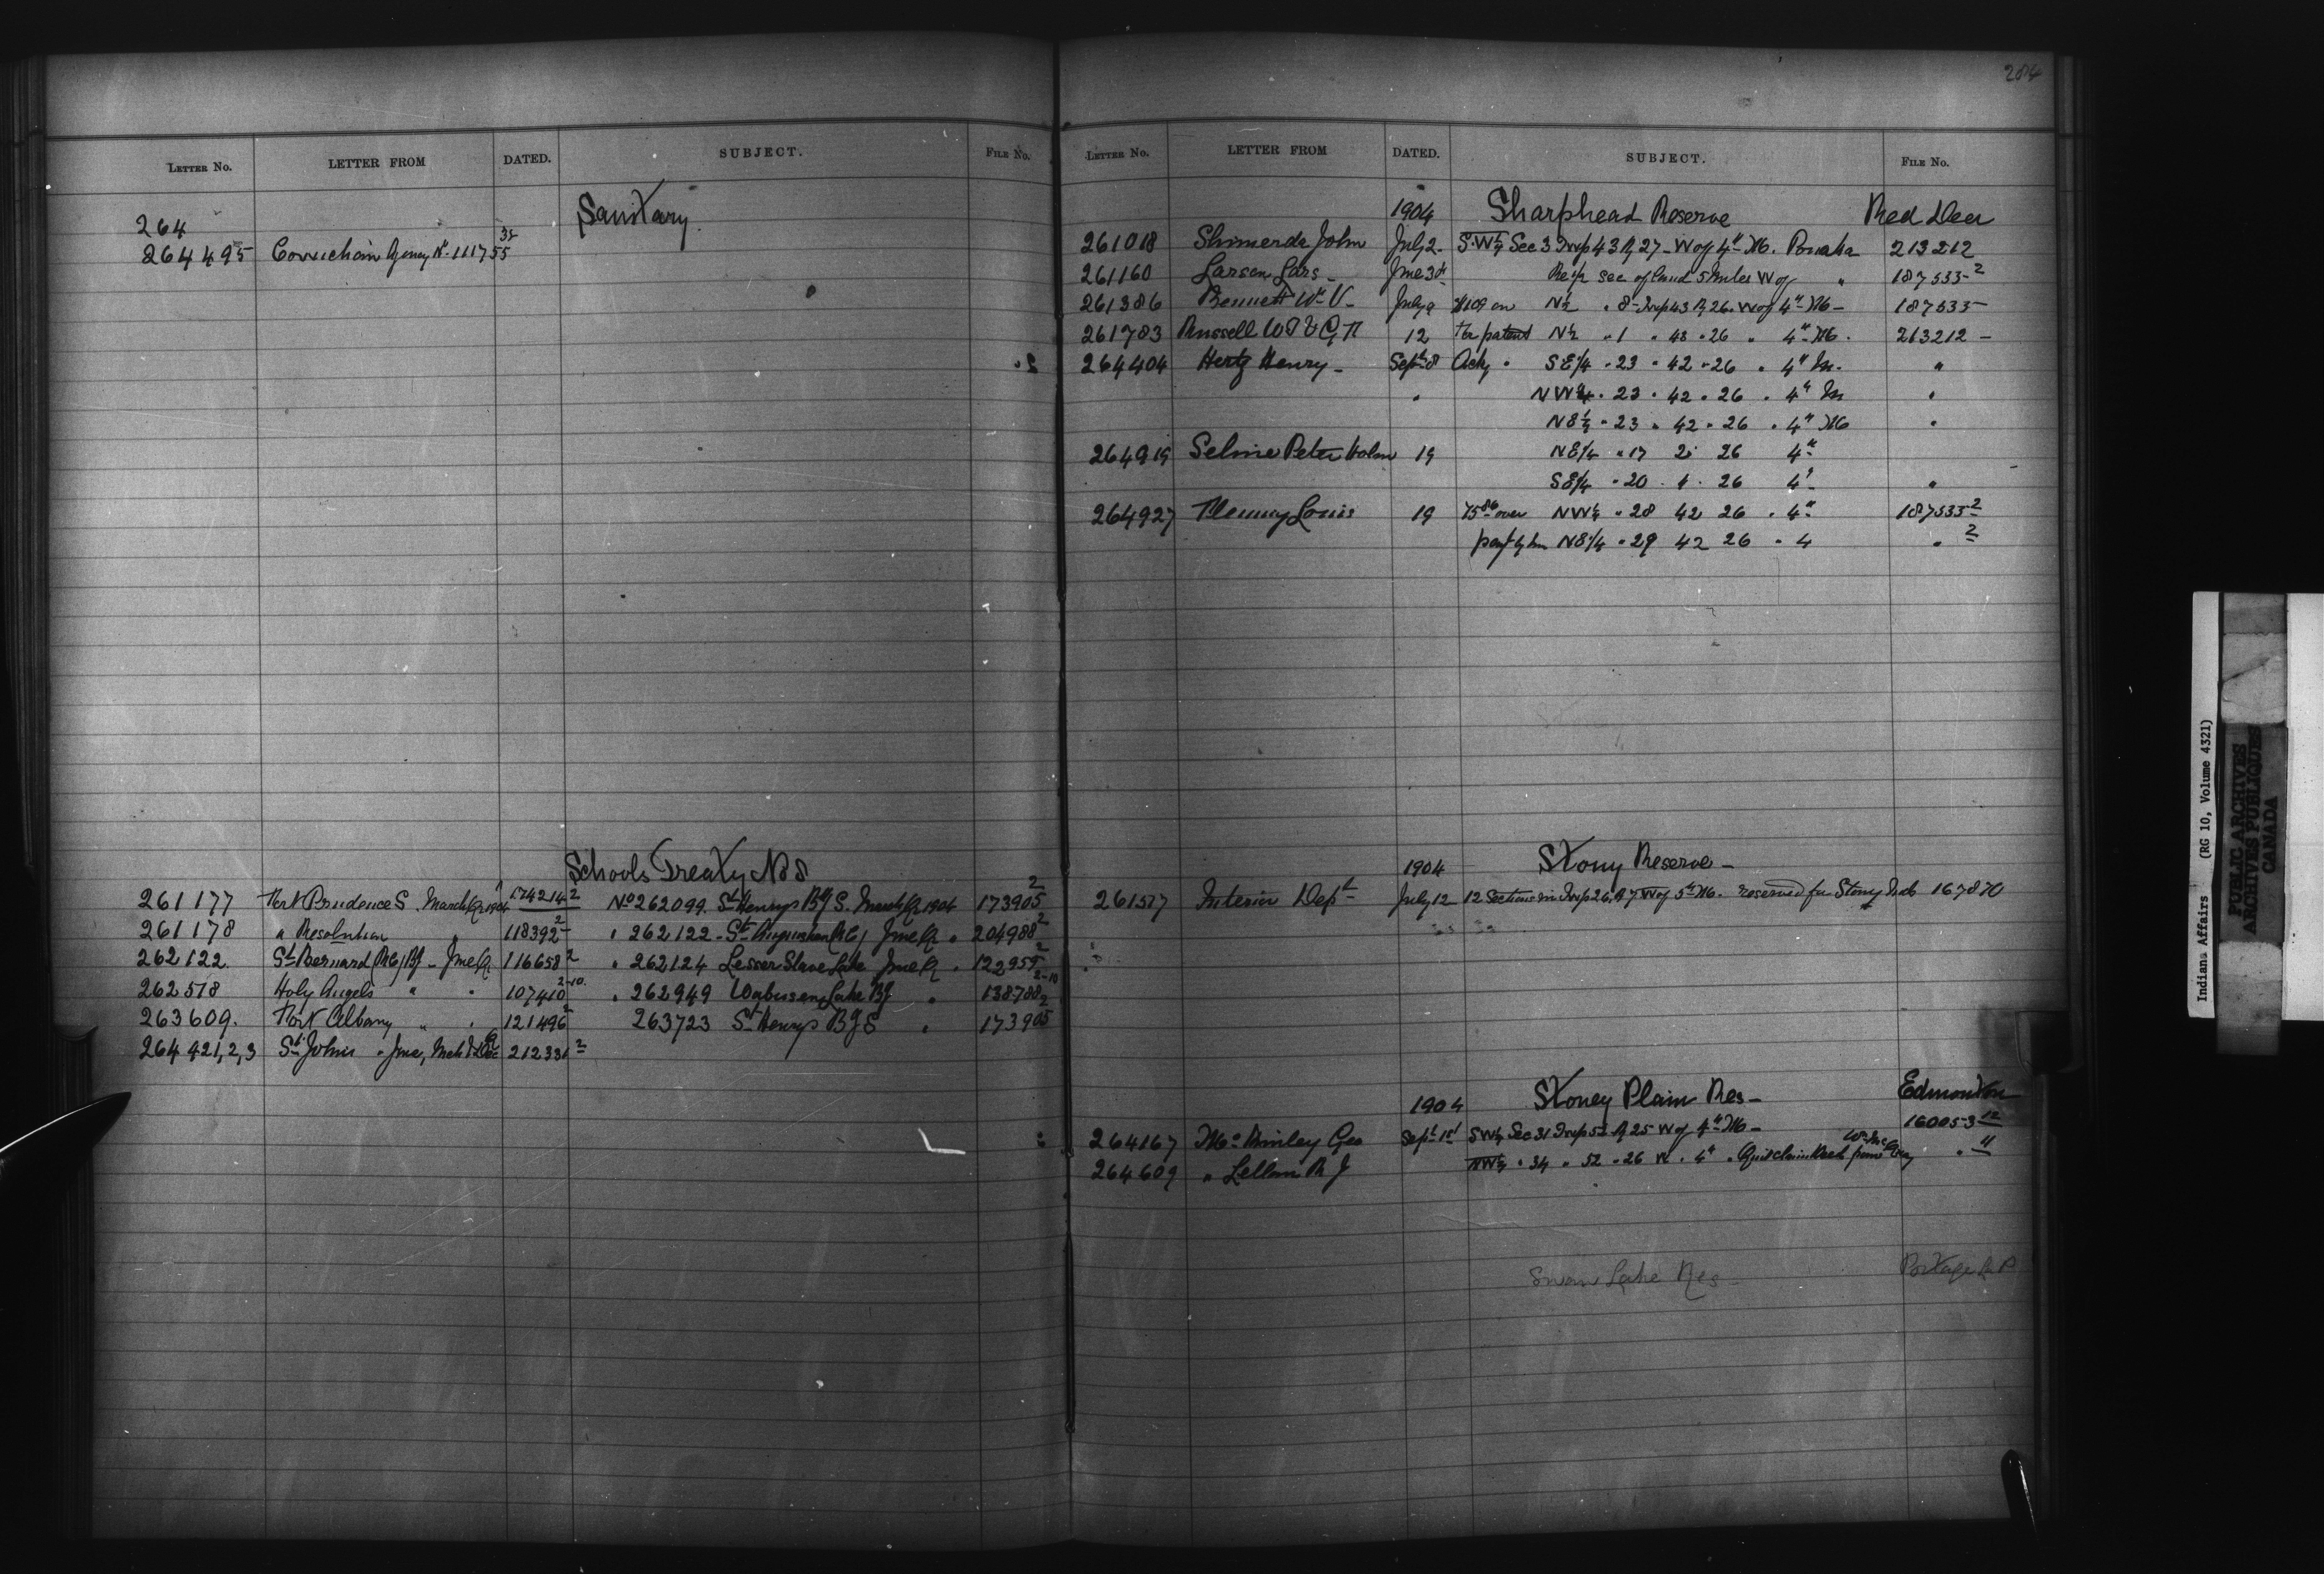 LETTER No. LETTER FROM DATED. SUBJECT. FILE No.
Sanitary.
264
264495 Cowichan Agency No. 111755 38
Schools Treaty No 8
261177 Fort Prudence S. March Qr 1904 174214 2 No 262099. St Henrys Bg S. March Qr 1904 173905 2
261178 " Resolution " 118392 2 " 262122 - St Augustine (RC) June Qr " 204988 2
262122 St Bernard (RC) Bg - June Qr 116658 2 " 262124 Lesser Slave Lake June Qr " 122959 2
262518 Holy Angels " " 107410 2-10 " 262949 Wabuscan Lake Bg " 138788 2-10
263609. Fort Albany " " 121496 2 263723 St Henrys Bg S " 173905 2
264421,2,3 St Johns - June, Mch & Dec Q 212331 2
284
LETTER No. LETTER FROM DATED. SUBJECT. FILE No.
1904 Sharphead Reserve Red Deer
261018 Shimerda John July 2 - S.W¼ Sec 3 Twp 43 R 27 - W of 4" M. Ponoka 213212
261160 Larsen Lars - June 30 Re ½ sec of land 5 miles W of " 187535-2
261386 Bennett Wm V - July 9 $109 on N½ " 8 - Twp 43 R 26 W of 4" M - 187535
261783 Russell W T & G H 12 For patent N½ " 1 " 43 " 26 " 4" M. 213212 -
264404 Hertz Henry - Sept 8 Ackg " S E¼ " 23 " 42 " 26 " 4" M. "
" NW¼ " 23 " 42 " 26 " 4" M "
NE¼ " 23 " 42 " 26 " 4" M "
264919 Selmie Peter Holm 19 NE¼ " 17 26 4"
SE¼ " 20 26 4" "
264927 Flemmy Louis 19 75 86 over NW¼ " 28 42 26 " 4" 187535 2
NE¼ " 29 42 26 " 4 " 2
1904 Stony Reserve -
261517 Interior Dept July 12 12 Sections in Twp 26, R 7 W of 5" M. reserved for Stony Inds 167870
1904 Stoney Plain Res - Edmonton
264167 McKinley Geo Sept 1st SW¼ Sec 31 Twp 52 R 25 W of 4" M - 160053 12
264609 " Lellan R J NW¼ " 34 " 52 " 26 W " 4" " Quit claim Deed from Wm McCray " 11
Swan Lake Res - Portage La P
Indians Affairs (RG 10, Volume 4321)
PUBLIC ARCHIVES
ARCHIVES PUBLIQUES
CANADA